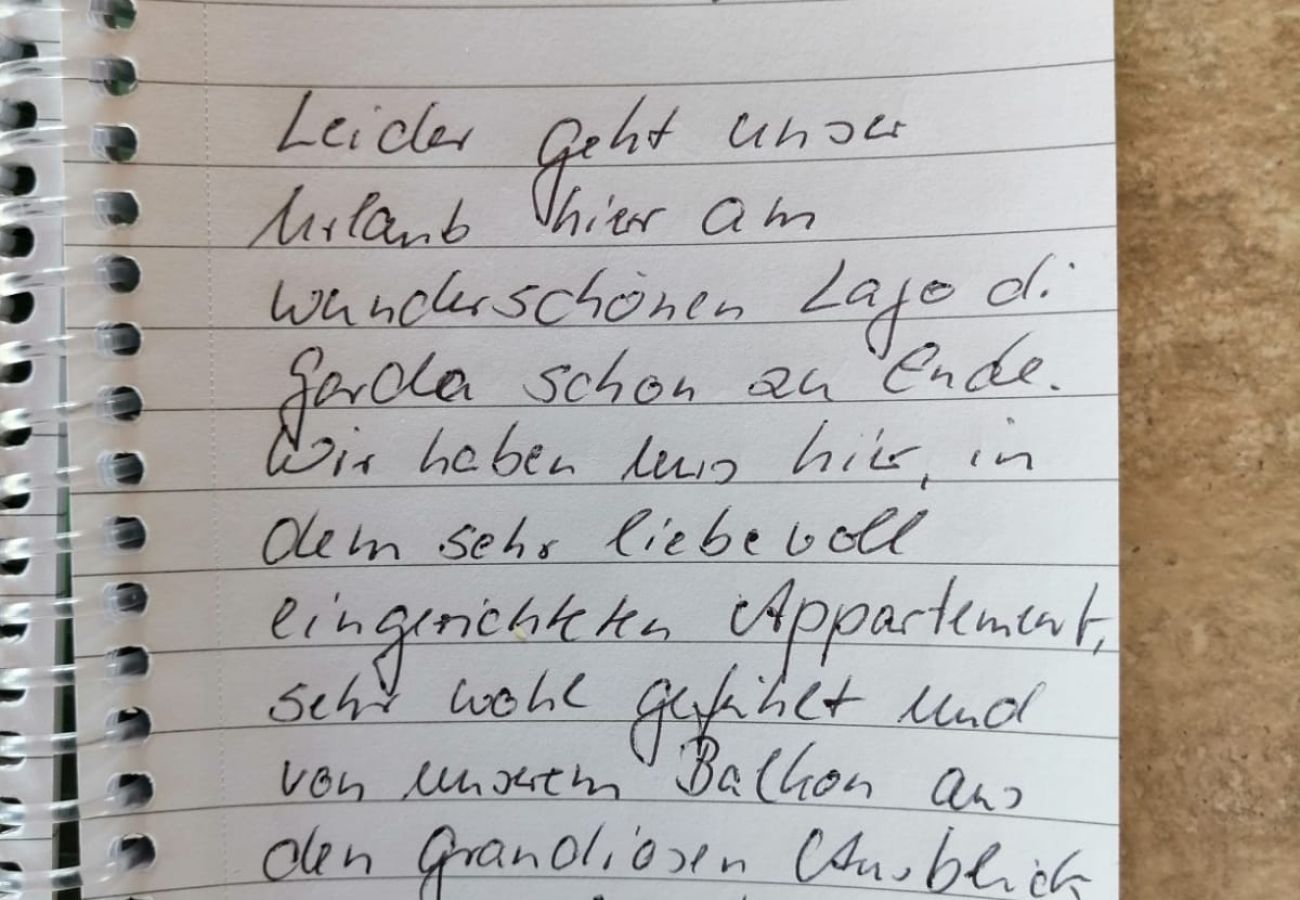 Leider geht unser
Urlaub hier am
wunderschönen Lago di
Garda schon zu Ende.
Wir haben uns hier, in
dem sehr liebevoll
eingerichteten Appartement,
sehr wohl gefühlt und
von unserem Balkon aus
den grandiosen Ausblick